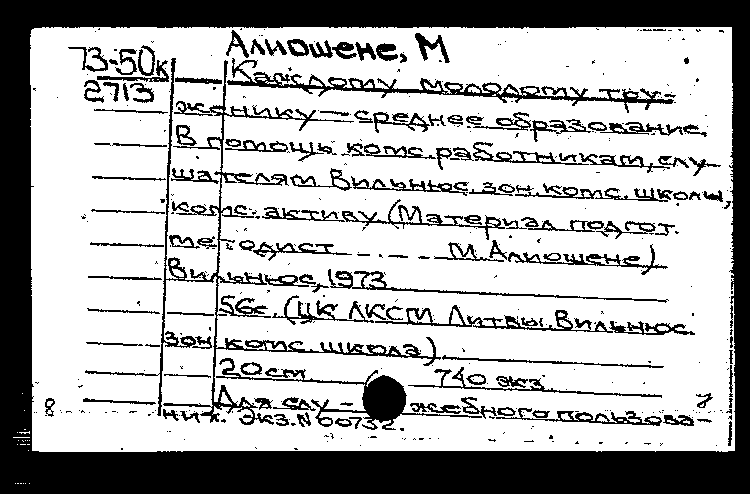 Алиошене, М
73-50к
2713
Каждому молодому тру-
женику — среднее образование.
В помощь комс. работникам, слу-
шателям Вильнюс. зон. комс. школы,
комс. активу (Материал подгот.
методист ... М. Алиошене)
Вильнюс, 1973.
56с. (ЦК ЛКСМ Литвы. Вильнюс.
зон. комс. школа).
20см. 740 экз.
Для слу - жебного пользова-
ния. Экз. N 00732.
8